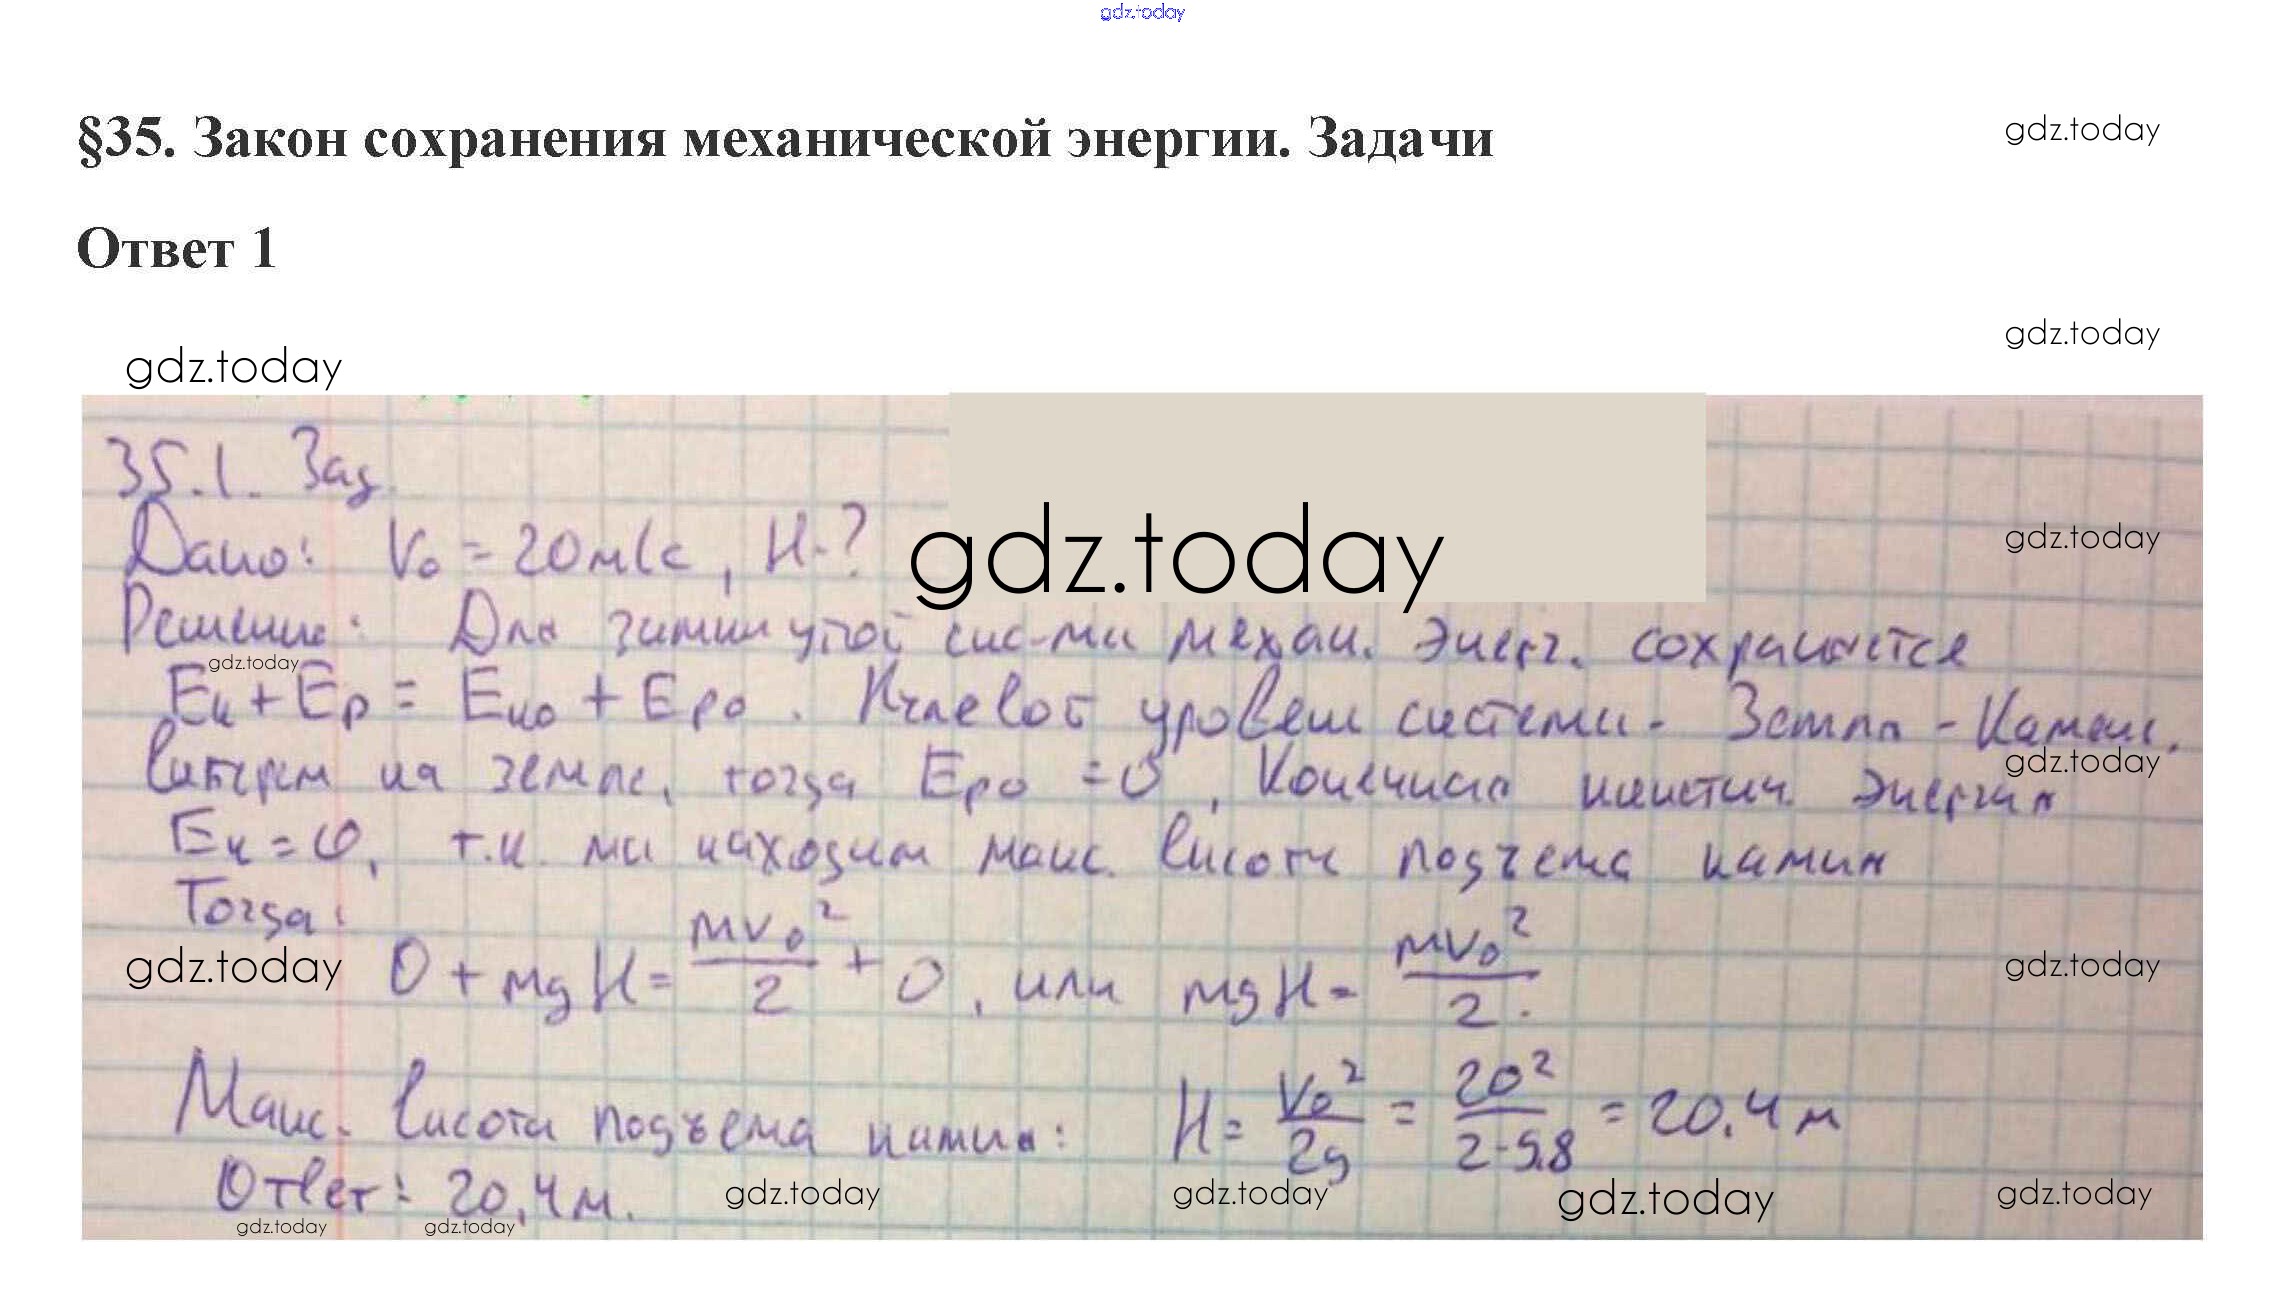 gdz.today
§35. Закон сохранения механической энергии. Задачи
gdz.today
Ответ 1
gdz.today
gdz.today
35.1. Зад.
Дано: V₀ = 20 м/с, H-?
gdz.today
gdz.today
Решение: Для замкнутой сис-мы механ. энерг. сохраняется
gdz.today
Eк + Eр = Eко + Eро. Нулевой уровень системы - Земля - Камень.
выберем на земле, тогда Eро = 0, Конечная кинетич. энергия
gdz.today
Eк = 0, т.к. мы находим макс. высоту подъема камня
Тогда:
gdz.today
0 + mgH = mv₀²/2 + 0, или mgH = mv₀²/2.
gdz.today
Макс. высота подъема камня: H = V₀²/2g = 20²/2·9,8 = 20,4 м
Ответ: 20,4 м.
gdz.today
gdz.today
gdz.today
gdz.today
gdz.today
gdz.today